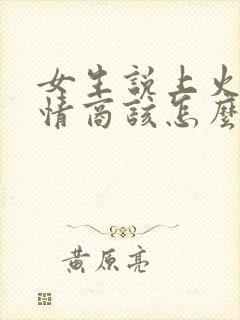 女生說上火
情商該怎麼
黃原亮